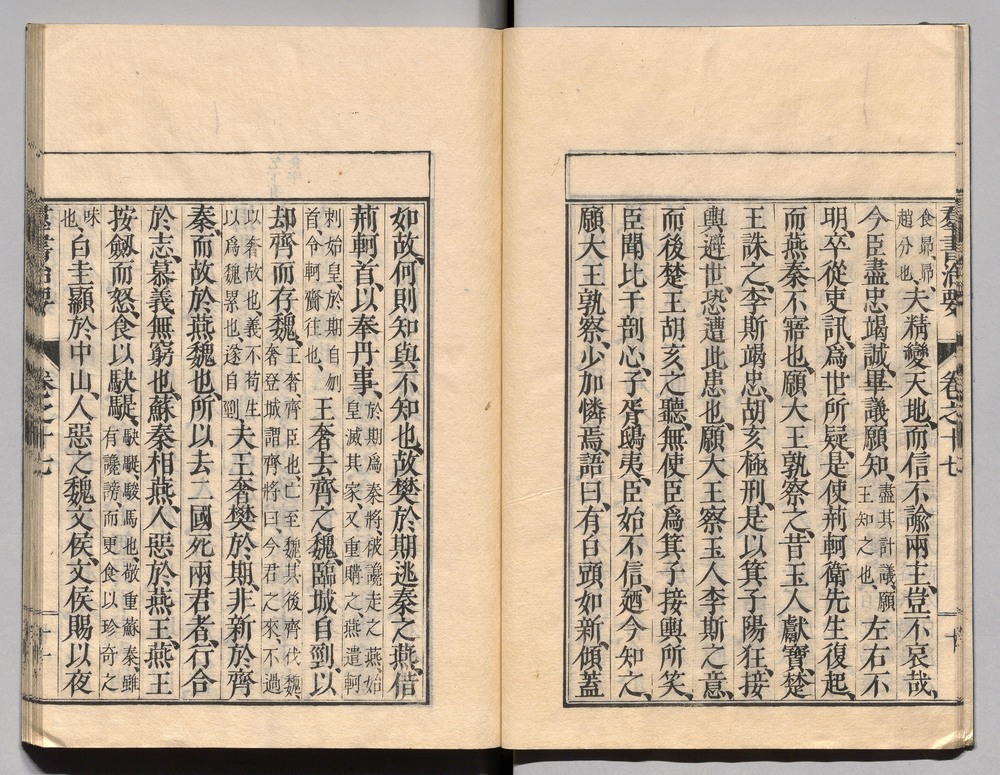 食昴昴
趙分也、夫精變天地、而信不諭兩主、豈不哀哉、
今臣盡忠竭誠、畢議願知、盡其計議、願
王知之也、左右不
明、卒從吏訊、爲世所疑、是使荊軻衛先生復起、
而燕秦不寤也、願大王孰察之、昔玉人獻寶、楚
王誅之、李斯竭忠、胡亥極刑、是以箕子陽狂、接
輿避世、恐遭此患也、願大王察玉人李斯之意、
而後楚王胡亥之聽、無使臣爲箕子接輿所笑、
臣聞比干剖心、子胥鴟夷、臣始不信、廼今知之、
願大王孰察、少加憐焉、語曰、有白頭如新、傾蓋
羣書治要 卷之十七
如故、何則知與不知也、故樊於期逃秦之燕、借
荊軻首、以奉丹事、於期爲秦將、被讒走之燕、始
皇滅其家、又重購之、燕遣軻
刺始皇、於期自刎
首、令軻齎往也、王奢去齊之魏、臨城自剄、以
却齊而存魏、王奢、齊臣也、亡至魏、其後齊伐魏、
奢登城謂齊將曰、今君之來、不過
以奢故也、義不苟生
以爲魏累也、遂自剄、夫王奢樊於期、非新於齊
秦、而故於燕魏也、所以去二國死兩君者、行合
於志、慕義無窮也、蘇秦相燕、人惡於燕王、燕王
按劔而怒、食以駃騠、駃騠、駿馬也、敬重蘇秦、雖
有讒謗、而更食以珍奇之
味
也、白圭顯於中山、人惡之魏文侯、文侯賜以夜
羣書治要 卷之十七 十一